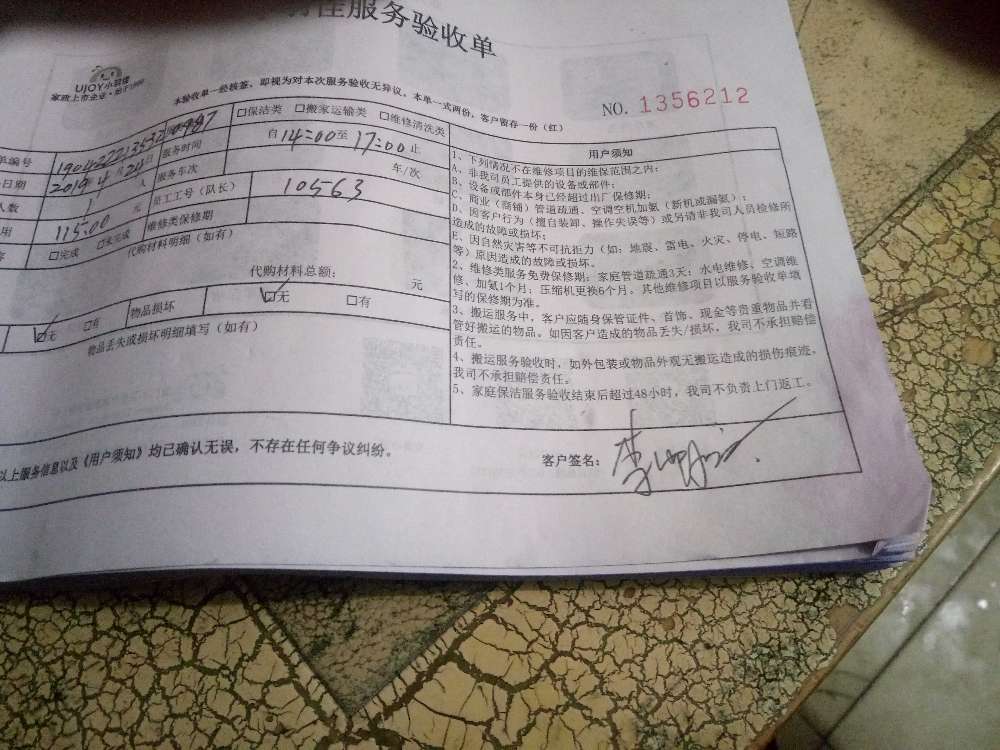 佳服务验收单
UJOY小羽佳
家政上市企业·始于1999
本验收单一经核签，即视为对本次服务验收无异议。本单一式两份，客户留存一份（红）
NO. 1356212
单编号
□保洁类 □搬家运输类 □维修清洗类
日期 2019年4月20日
服务时间 自14:00至17:00止
人数 1 人
服务车次 车/次
用 115.00 元
员工工号（队长） 10563
□完成 □未完成
维修类保修期
代购材料明细（如有）
代购材料总额： 元
☑无 □有
物品损坏 ☑无 □有
物品丢失或损坏明细填写（如有）
用户须知
1、下列情况不在维修项目的维保范围之内：
A、非我司员工提供的设备或部件；
B、设备或部件本身已经超过出厂保修期；
C、商业（商铺）管道疏通、空调空机加氨（新机或漏氨）；
D、因客户行为（擅自装卸、操作失误等）或另请非我司人员检修所
造成的故障或损坏；
E、因自然灾害等不可抗拒力（如：地震、雷电、火灾、停电、短路
等）原因造成的故障或损坏。
2、维修类服务免费保修期：家庭管道疏通3天；水电维修、空调维
修、加氨1个月；压缩机更换6个月。其他维修项目以服务验收单填
写的保修期为准。
3、搬运服务中，客户应随身保管证件、首饰、现金等贵重物品并看
管好搬运的物品。如因客户造成的物品丢失/损坏，我司不承担赔偿
责任。
4、搬运服务验收时，如外包装或物品外观无搬运造成的损伤痕迹，
我司不承担赔偿责任。
5、家庭保洁服务验收结束后超过48小时，我司不负责上门返工。
以上服务信息以及《用户须知》均已确认无误，不存在任何争议纠纷。
客户签名：